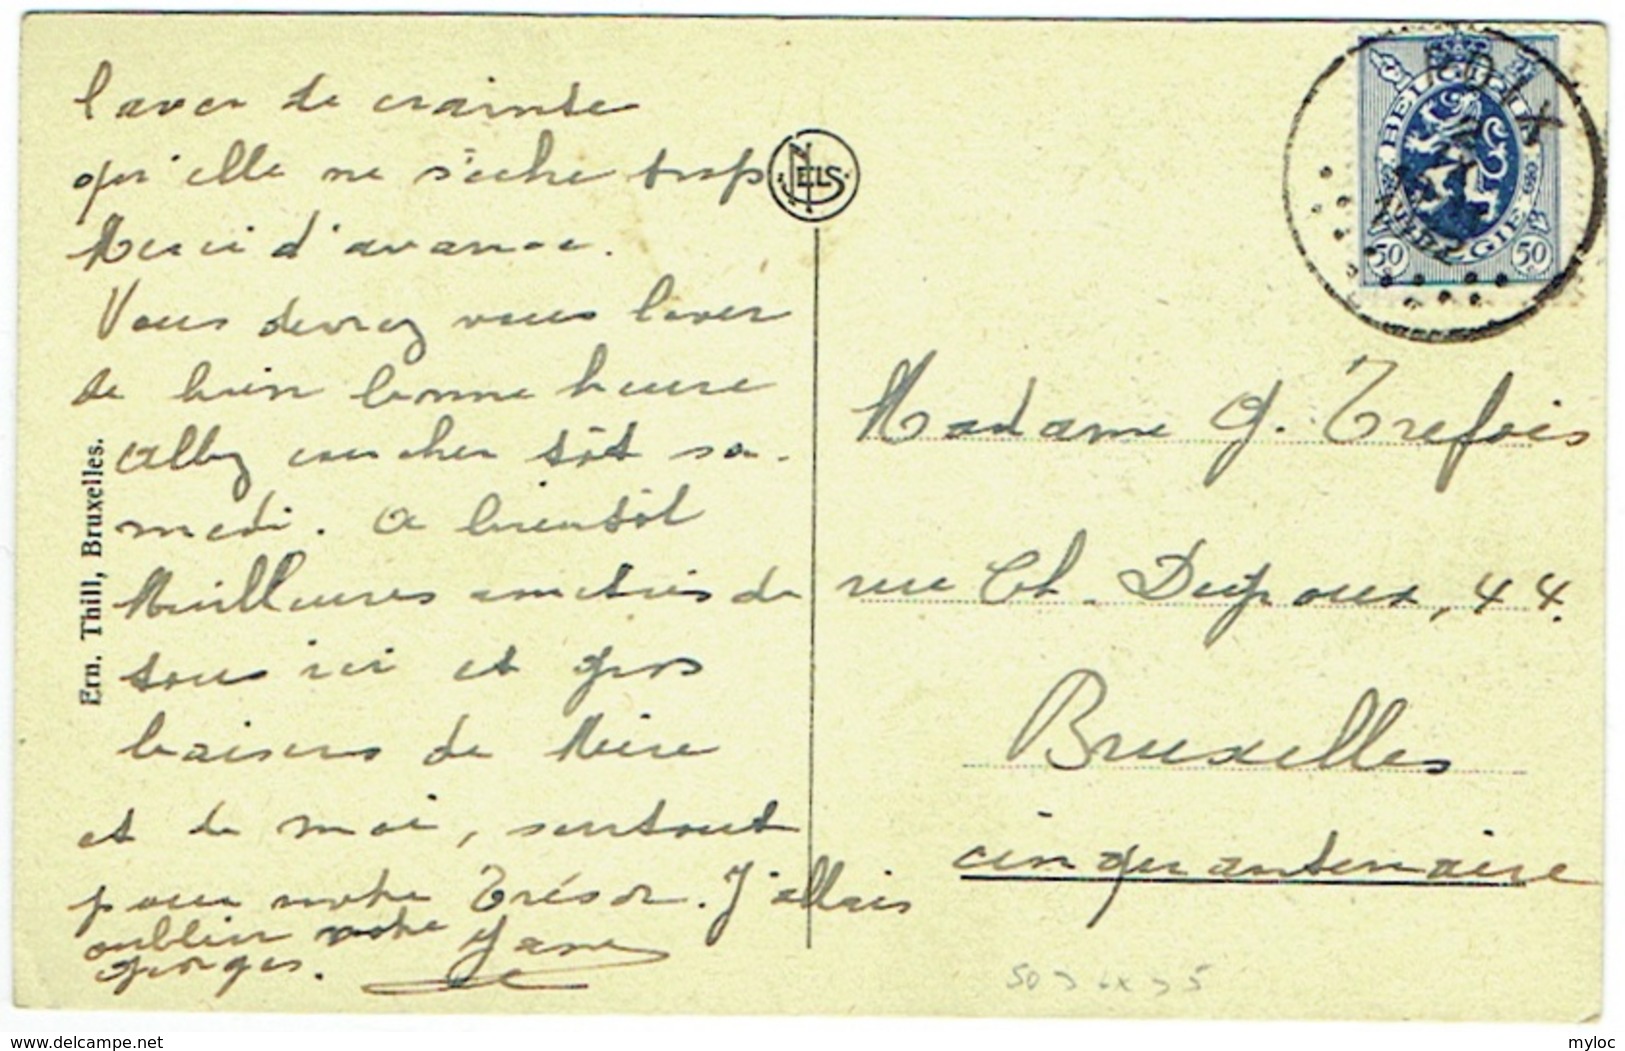 laver de crainte
qu'elle ne sèche trop
Merci d'avance.
Vous devrez vous laver
de bien bonne heure
Allez coucher tôt sa-
medi. A bientôt
Meilleures amitiés de
tous ici et gros
baisers de Mère
et de moi, surtout
pour notre Trésor. J'allais
oublier votre
Georges. Jane
Ern. Thill, Bruxelles.
NELS
BELGIQUE
BELGIE
50 50
Madame G. Trefois
rue Ch. Dupoux, 44.
Bruxelles
cinquantenaire
delcampe.net
myloc